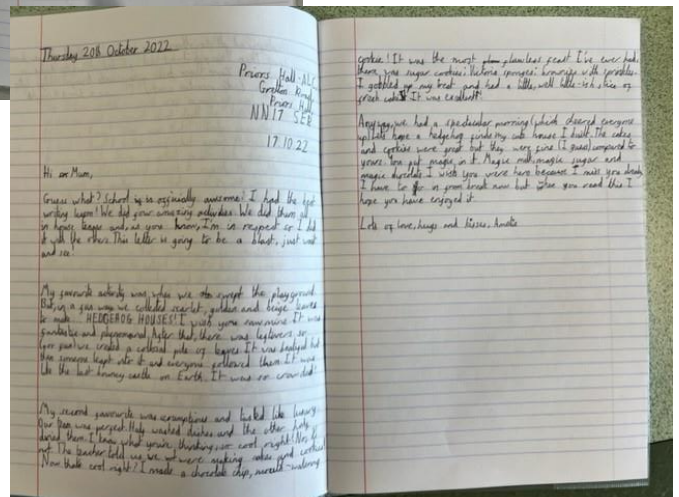 Thursday 20th October 2022
Priors Hall-ALC
Gretton Road
Priors Hall
NN17 5EB
17.10.22
Hi Mum,
Guess what? School is officially awesome! I had the best
writing lesson! We did four amazing activities. We did them all
in house teams and, as you know, I'm in respect so I did
it with the others. This letter is going to be a blast, just wait
and see!
My favourite activity was when we swept the playground.
But, in a fun way we collected scarlet, golden and beige leaves
to make HEDGEHOG HOUSES! I wish you saw mine. It was
fantastic and phenomenal. After that, there was leftovers so
(for fun) we created a colossal pile of leaves. It was
then someone leapt into it and everyone followed them. It was
like the last bouncy castle on Earth. It was so crowded!
My second favourite was scrumptious and tasted like luxury.
Our plan was perfect. Half washed dishes and the other half
dried them. I know what you're thinking, so cool right! No, it's
not. The teacher told us, we were making cakes and cookies!
Now thats cool right! I made a chocolate chip, mouth-watering
cookie! It was the most flawless feast I've ever had,
there was sugar cookies, Victoria sponges, brownies with sprinkles.
I gobbled up my treat and had a little, well little-ish, slice of
each cake. It was excellent!
Anyway, we had a spectacular morning (which cheered everyone
up) lets hope a hedgehog finds my cute house I built. The cakes
and cookies were great but they were fine (I guess) compared to
yours. You put magic in it. Magic milk, magic sugar and
magic chocolate. I wish you were here because I miss you already.
I have to go in from break now but when you read this I
hope you have enjoyed it.
Lots of love, hugs and kisses,